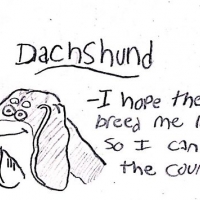 Dachshund
-I hope the
breed me
So I can
the